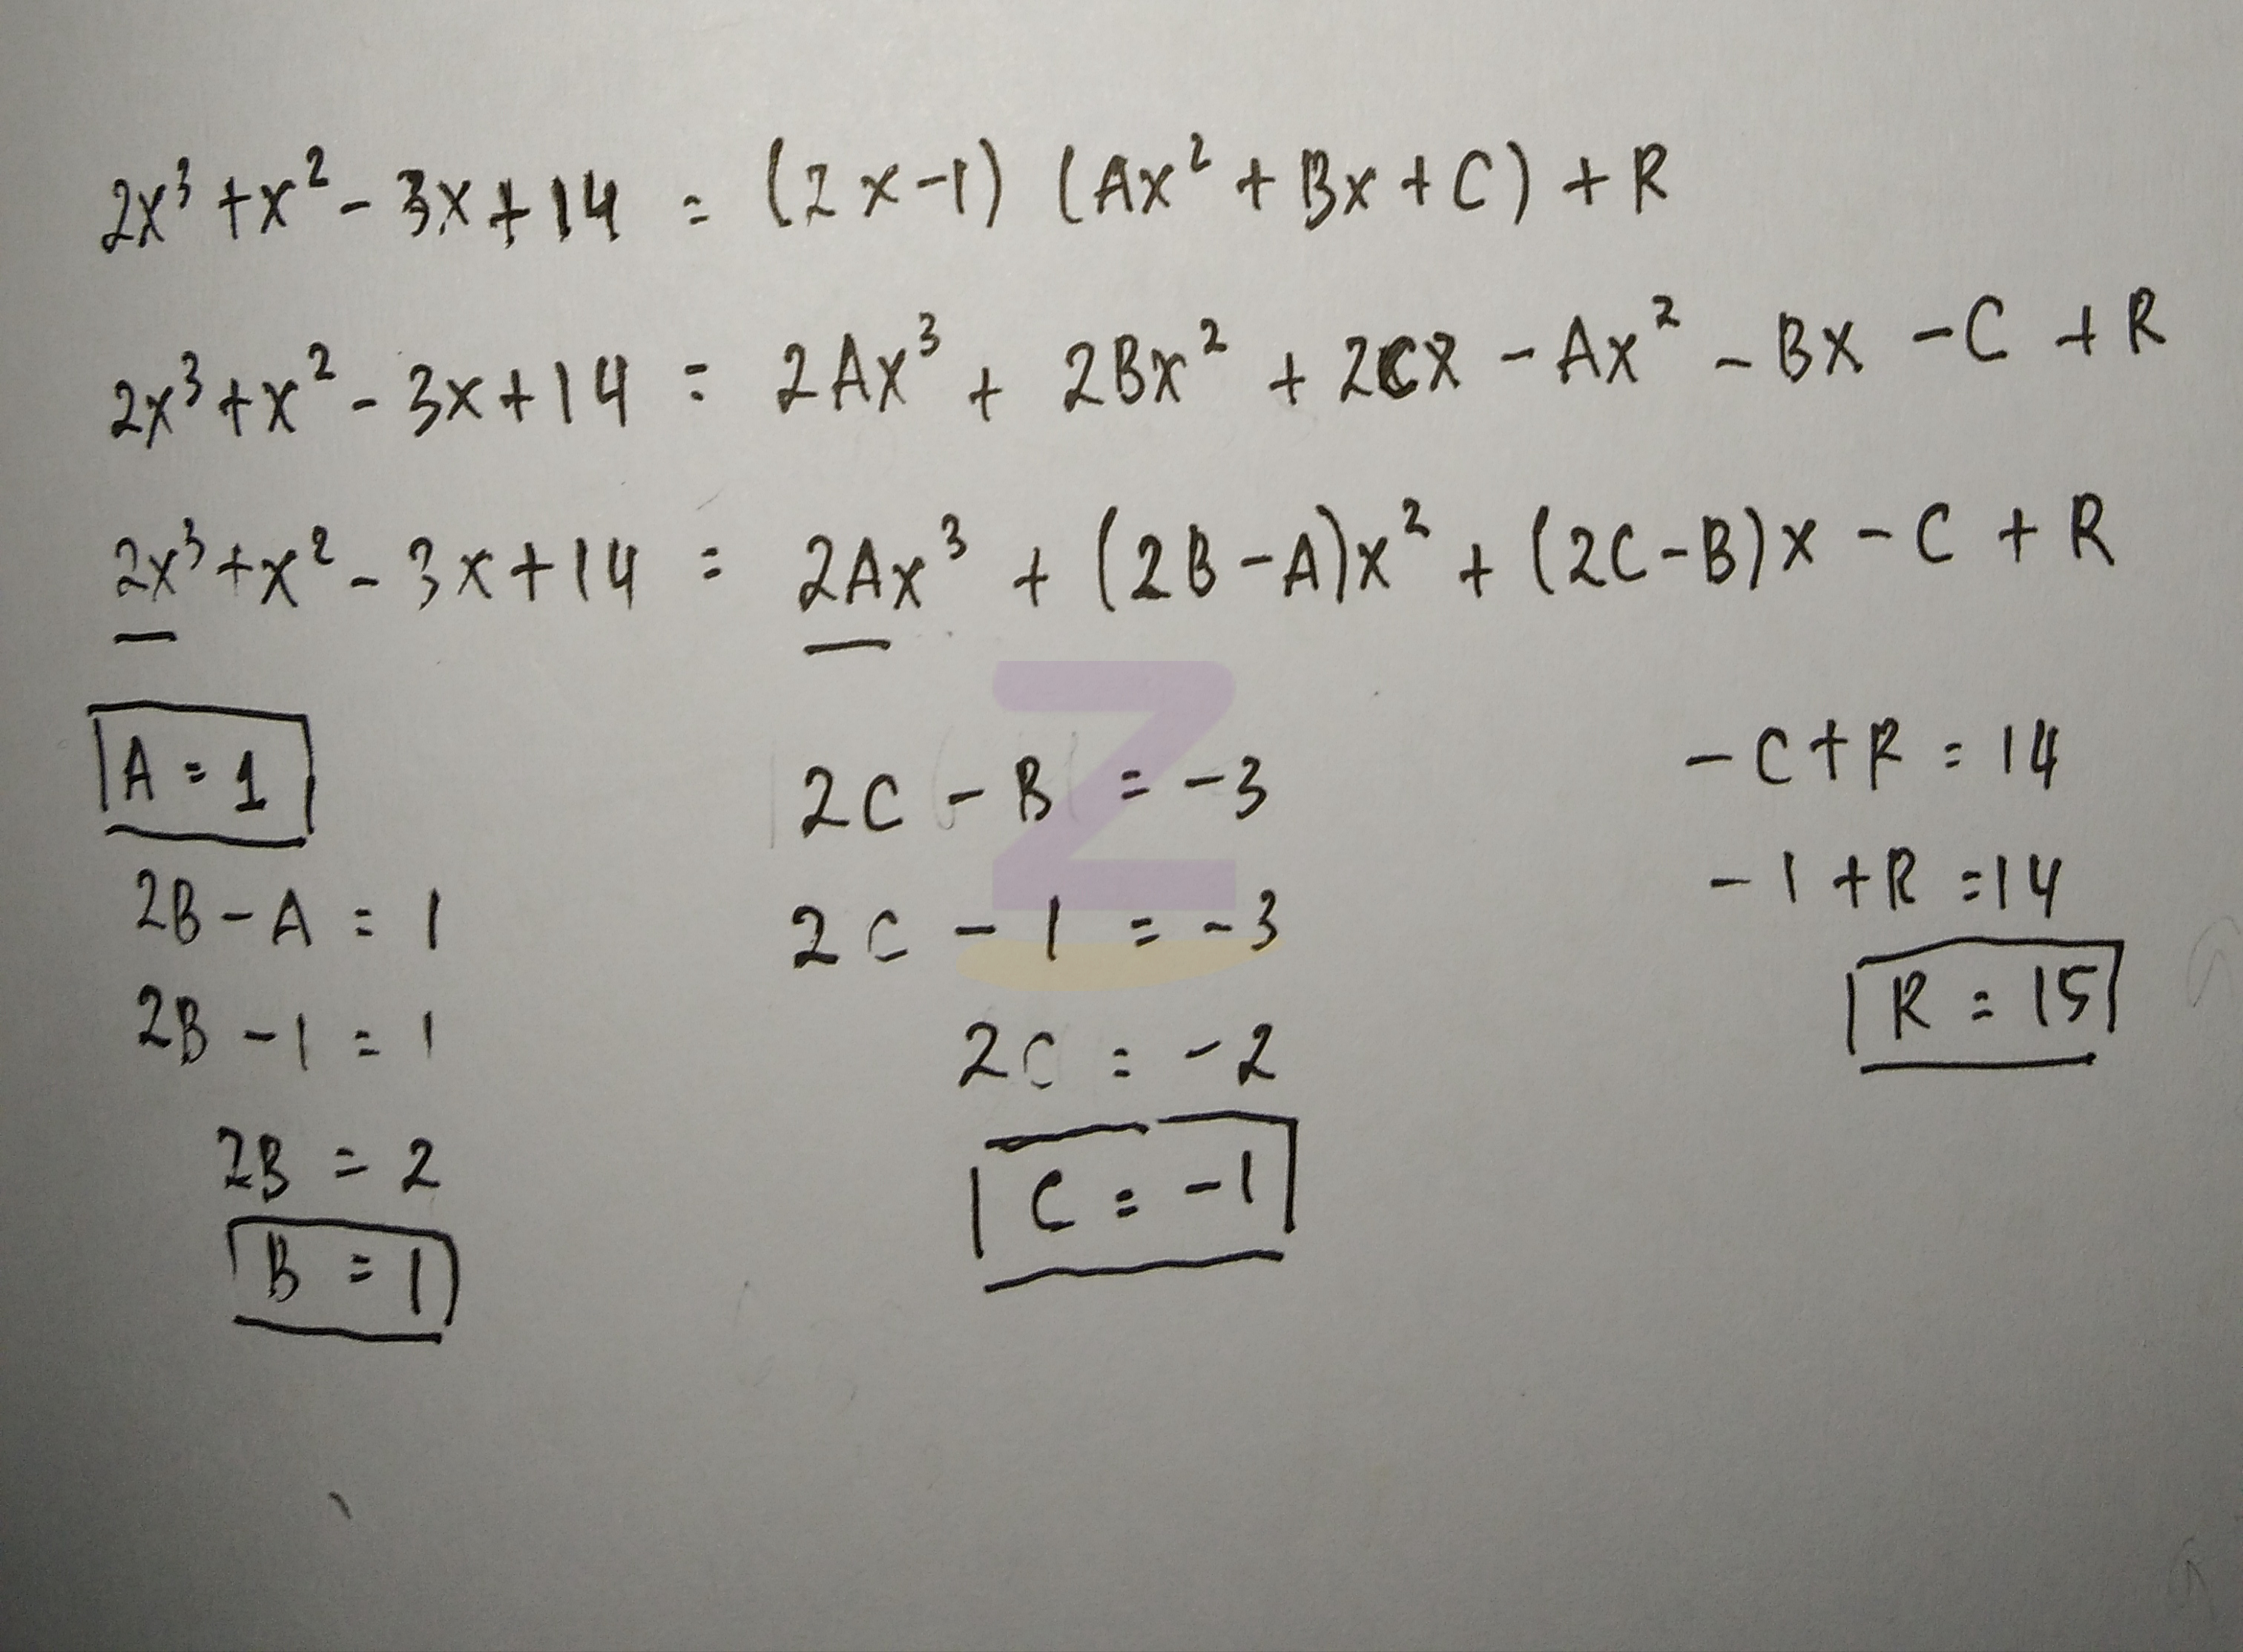 2x³ + x² - 3x + 14 = (2x-1) (Ax² + Bx + C) + R
2x³ + x² - 3x + 14 = 2Ax³ + 2Bx² + 2Cx - Ax² - Bx - C + R
2x³ + x² - 3x + 14 = 2Ax³ + (2B-A)x² + (2C-B)x - C + R
A = 1
2B - A = 1
2B - 1 = 1
2B = 2
B = 1
2C - B = -3
2C - 1 = -3
2C = -2
C = -1
-C + R = 14
-1 + R = 14
R = 15
Z